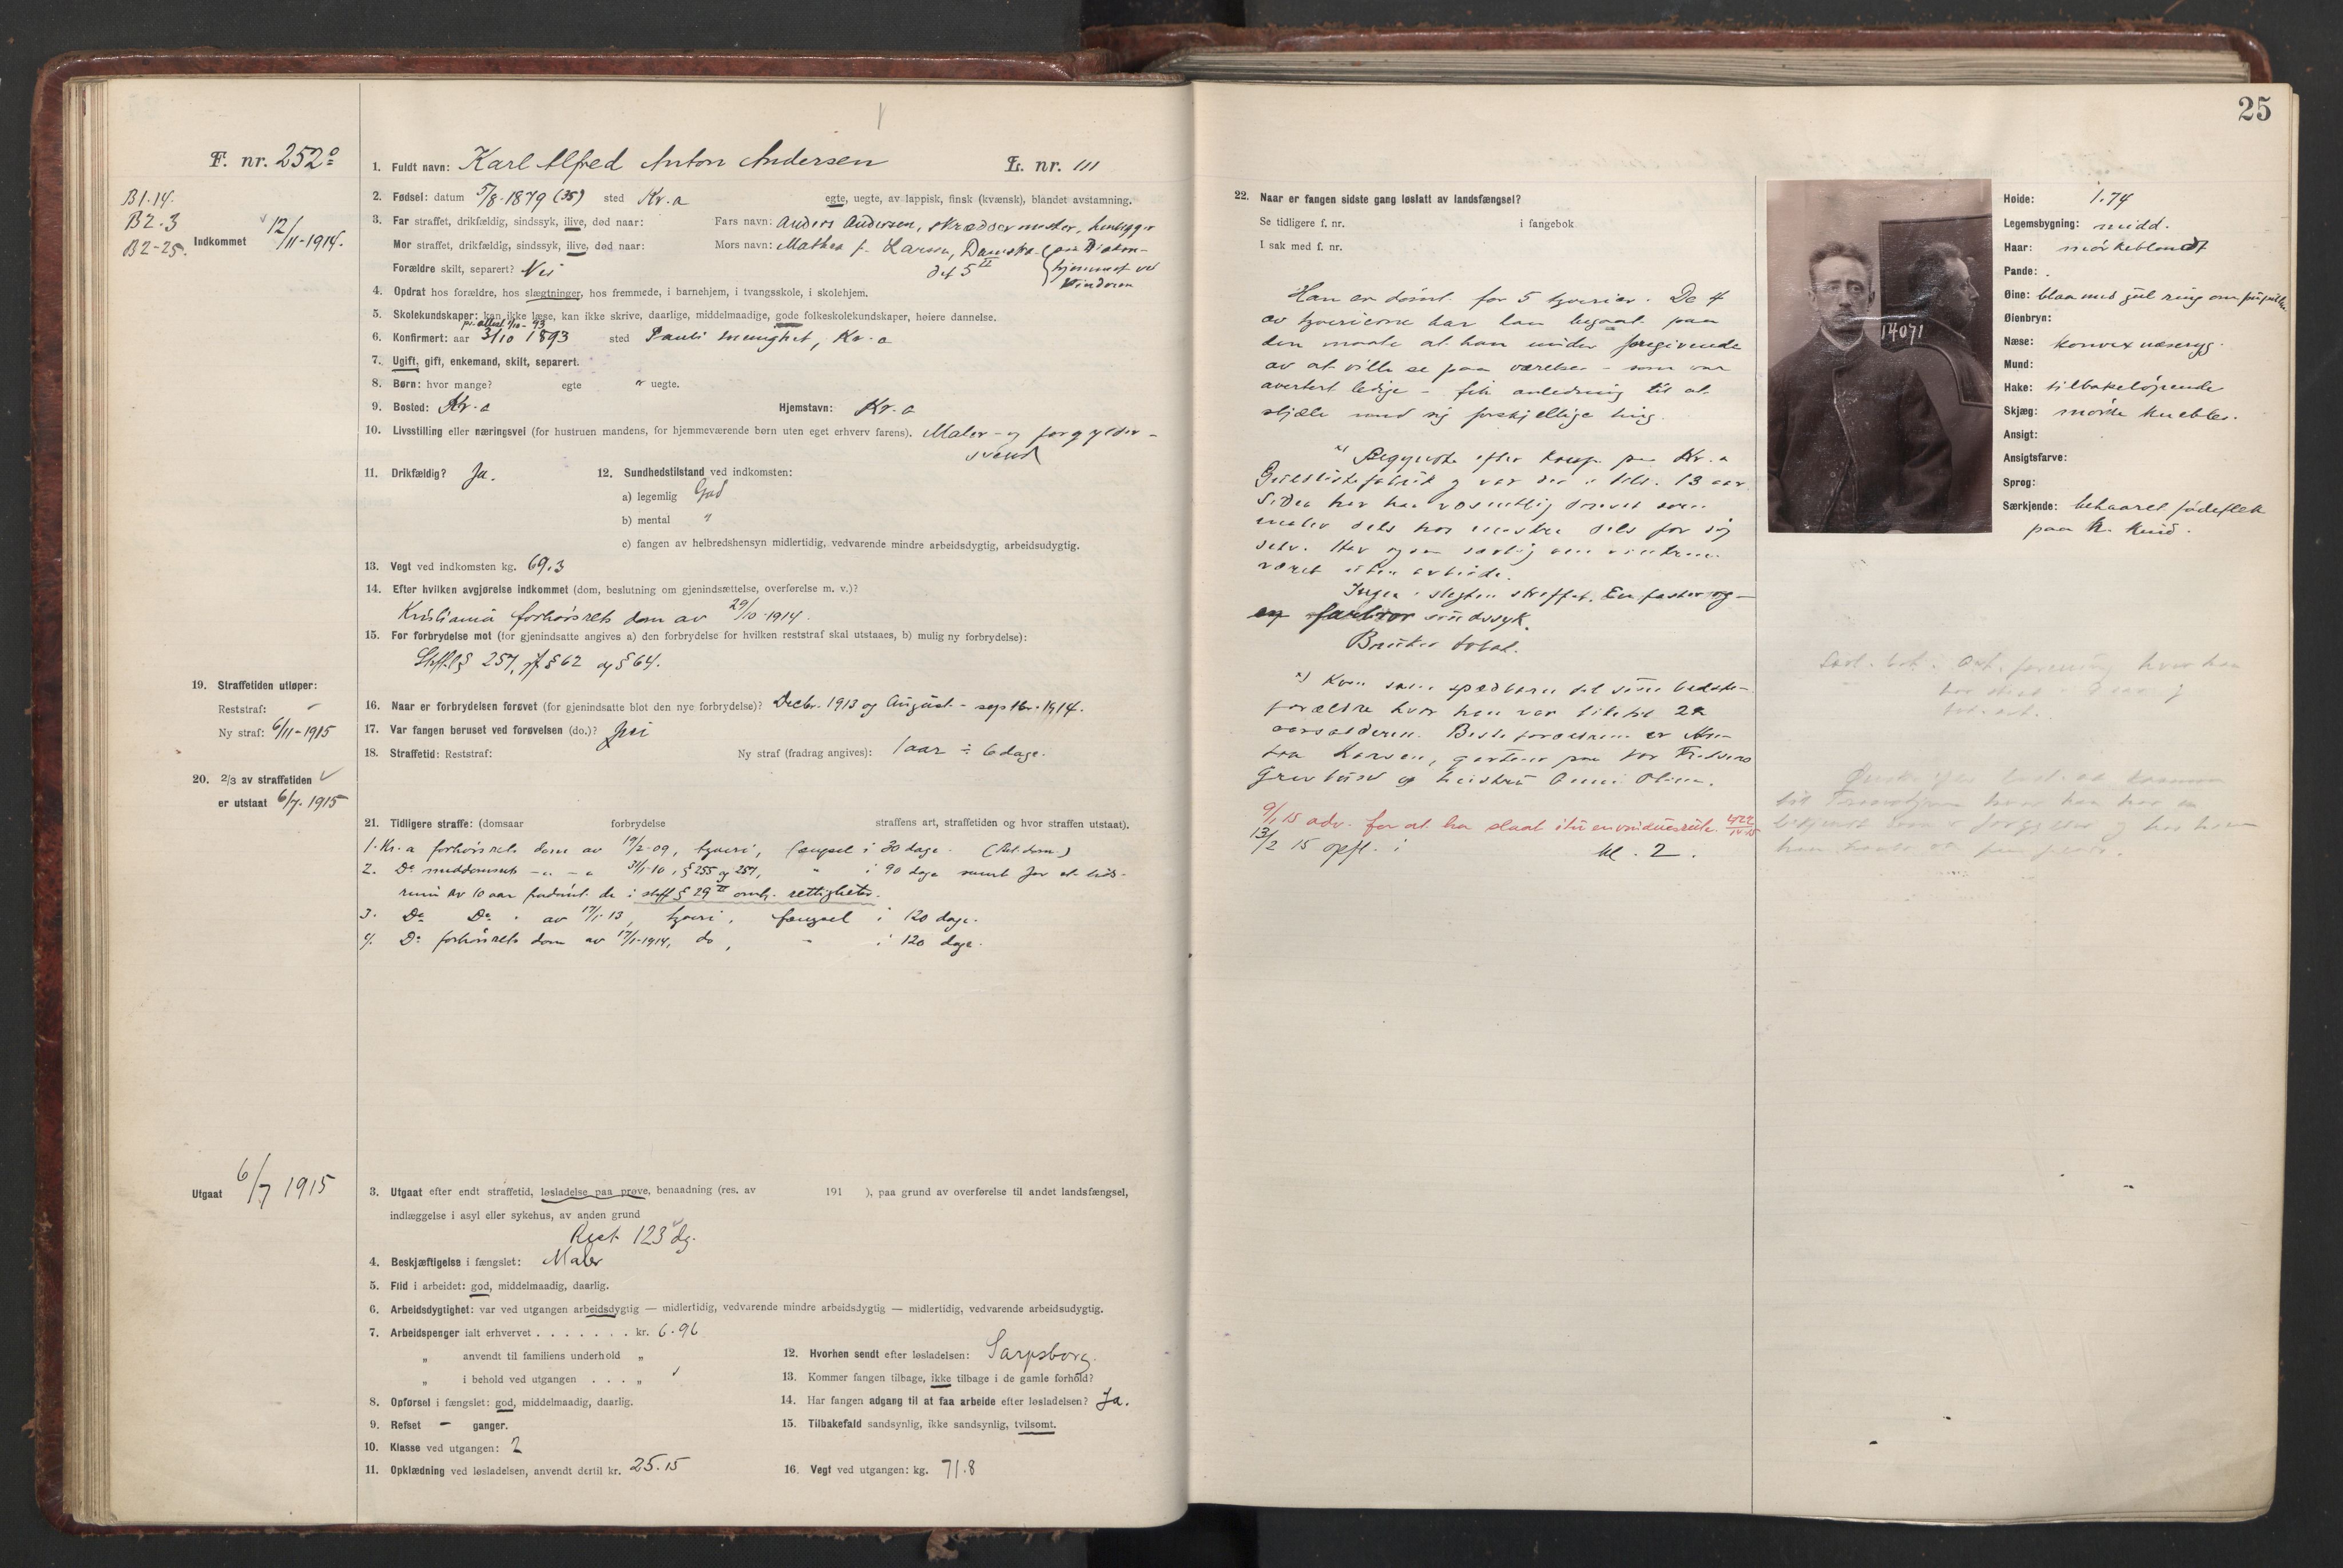 F. nr. 252
B1.14.
B2.3
B2-25.
Indkommet 12/11-1914.
1. Fuldt navn: Karl Alfred Anton Andersen L. nr. 111
2. Fødsel: datum 5/8-1879 (35) sted Kr.a egte, uegte, av lappisk, finsk (kvænsk), blandet avstamning.
3. Far straffet, drikfældig, sindssyk, ilive, død naar: Fars navn: Anders Andersen, skræddermester,
Mor straffet, drikfældig, sindssyk, ilive, død naar: Mors navn: Mathea f. Larsen,
Forældre skilt, separert? Nei
hjemmet ved
Vinderen
4. Opdrat hos forældre, hos slægtninger, hos fremmede, i barnehjem, i tvangsskole, i skolehjem.
5. Skolekundskaper: kan ikke læse, kan ikke skrive, daarlige, middelmaadige, gode folkeskolekundskaper, høiere dannelse.
6. Konfirmert: aar 3/10 1893 sted Pauli menighet, Kr.a
7. Ugift, gift, enkemand, skilt, separert.
8. Børn: hvor mange? egte uegte.
9. Bosted: Kr.a Hjemstavn: Kr.a
10. Livsstilling eller næringsvei (for hustruen mandens, for hjemmeværende børn uten eget erhverv farens). Maler- og forgylder-
svend
11. Drikfældig? Ja. 12. Sundhedstilstand ved indkomsten:
a) legemlig God
b) mental "
c) fangen av helbredshensyn midlertidig, vedvarende mindre arbeidsdygtig, arbeidsudygtig.
13. Vegt ved indkomsten kg. 69.3
14. Efter hvilken avgjørelse indkommet (dom, beslutning om gjenindsættelse, overførelse m. v.)?
Kristiania forhørsrets dom av 29/10-1914.
15. For forbrydelse mot (for gjenindsatte angives a) den forbrydelse for hvilken reststraf skal utstaaes, b) mulig ny forbrydelse):
Strfl. § 257, jf. § 62 og § 64.
19. Straffetiden utløper:
Reststraf: -
Ny straf: 6/11-1915
16. Naar er forbrydelsen forøvet (for gjenindsatte blot den nye forbrydelse)? Decbr. 1913 og August - septbr. 1914.
17. Var fangen beruset ved forøvelsen (do.)? Nei
18. Straffetid: Reststraf: Ny straf (fradrag angives): 1 aar ÷ 6 dage.
20. 2/3 av straffetiden
er utstaat 6/7. 1915
21. Tidligere straffe: (domsaar forbrydelse straffens art, straffetiden og hvor straffen utstaat).
1. Kr.a forhørsrets dom av 19/2-09, tyveri, fængsel i 30 dage. (Bet. dom.)
2. Do meddomsrets -"- - " 31/1-10, § 255 og 257, " i 90 dage samt for et tids-
rum av 10 aar fradømt de i strfl § 29 II omh. rettigheter.
3. Do Do " av 17/1-13, tyveri, fængsel i 120 dage.
4. Do forhørsrets dom av 17/1-1914, do, " i 120 dage.
Utgaat 6/7 1915
3. Utgaat efter endt straffetid, løsladelse paa prøve, benaadning (res. av 191 ), paa grund av overførelse til andet landsfængsel,
indlæggelse i asyl eller sykehus, av anden grund
Rest 123 dg.
4. Beskjæftigelse i fængslet: Maler
5. Flid i arbeidet: god, middelmaadig, daarlig.
6. Arbeidsdygtighet: var ved utgangen arbeidsdygtig — midlertidig, vedvarende mindre arbeidsdygtig — midlertidig, vedvarende arbeidsudygtig.
7. Arbeidspenger ialt erhvervet . . . . . . . kr. 6.96
" anvendt til familiens underhold "
" i behold ved utgangen . . . "
8. Opførsel i fængslet: god, middelmaadig, daarlig.
9. Refset - ganger.
10. Klasse ved utgangen: 2
11. Opklædning ved løsladelsen, anvendt dertil kr. 25.15
12. Hvorhen sendt efter løsladelsen: Sarpsborg.
13. Kommer fangen tilbage, ikke tilbage i de gamle forhold?
14. Har fangen adgang til at faa arbeide efter løsladelsen? Ja.
15. Tilbakefald sandsynlig, ikke sandsynlig, tvilsomt.
16. Vegt ved utgangen: kg. 71.8
25
22. Naar er fangen sidste gang løslatt av landsfængsel?
Se tidligere f. nr. i fangebok
I sak med f. nr.
Han er dømt for 5 tyverier. De 4
av tyverierne har han begaat paa
den maate at han under foregivende
av at ville se paa værelser - som var
avertert ledige - fik anledning til at
stjæle med sig forskjellige ting.
Begyndte efter konf. paa Kr.a
Guldlistefabrik og var der i 13 aar.
Siden har han væsentlig drevet som
maler dels hos mestre dels for sig
selv. Har ogsaa særlig om vintrene
været uten arbeide.
Ingen i slegten straffet. En faster og
en farbror sindssyk.
Bruker tobak.
x) Kom som spædbarn til sine bedste-
forældre hvor han var til 22
aarsalderen.
14071
Høide: 1.74
Legemsbygning: midd.
Haar: mørkeblondt
Pande:
Øine: blaa med gul ring om pupillen.
Øienbryn:
Næse: konvex næseryg.
Mund:
Hake: tilbakeløpende
Skjæg: mørke knebler.
Ansigt:
Ansigtsfarve:
Sprog:
Særkjende: behaaret fødeflek
paa h. kind.
9/1 15 adv. for at ha slaat itu en vindusrute.
13/2 15 opfl. i kl. 2.